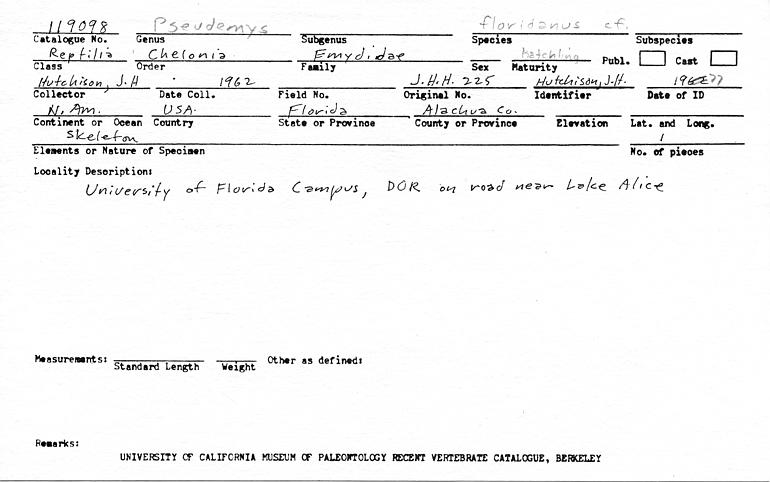 119098 Pseudemys floridanus cf.
Catalogue No. Genus Subgenus Species Subspecies
Reptilia Chelonia Emydidae hatchling Publ. Cast
Class Order Family Sex Maturity
Hutchison, J.H 1962 J.H.H. 225 Hutchison, J.H.
Collector Date Coll. Field No. Original No. Identifier Date of ID
N. Am. USA. Florida Alachua Co.
Continent or Ocean Country State or Province County or Province Elevation Lat. and Long.
Skeleton 1
Elements or Nature of Specimen No. of pieces
Locality Description:
University of Florida Campus, DOR on road near Lake Alice
Measurements: Other as defined:
Standard Length Weight
Remarks:
UNIVERSITY OF CALIFORNIA MUSEUM OF PALEONTOLOGY RECENT VERTEBRATE CATALOGUE, BERKELEY